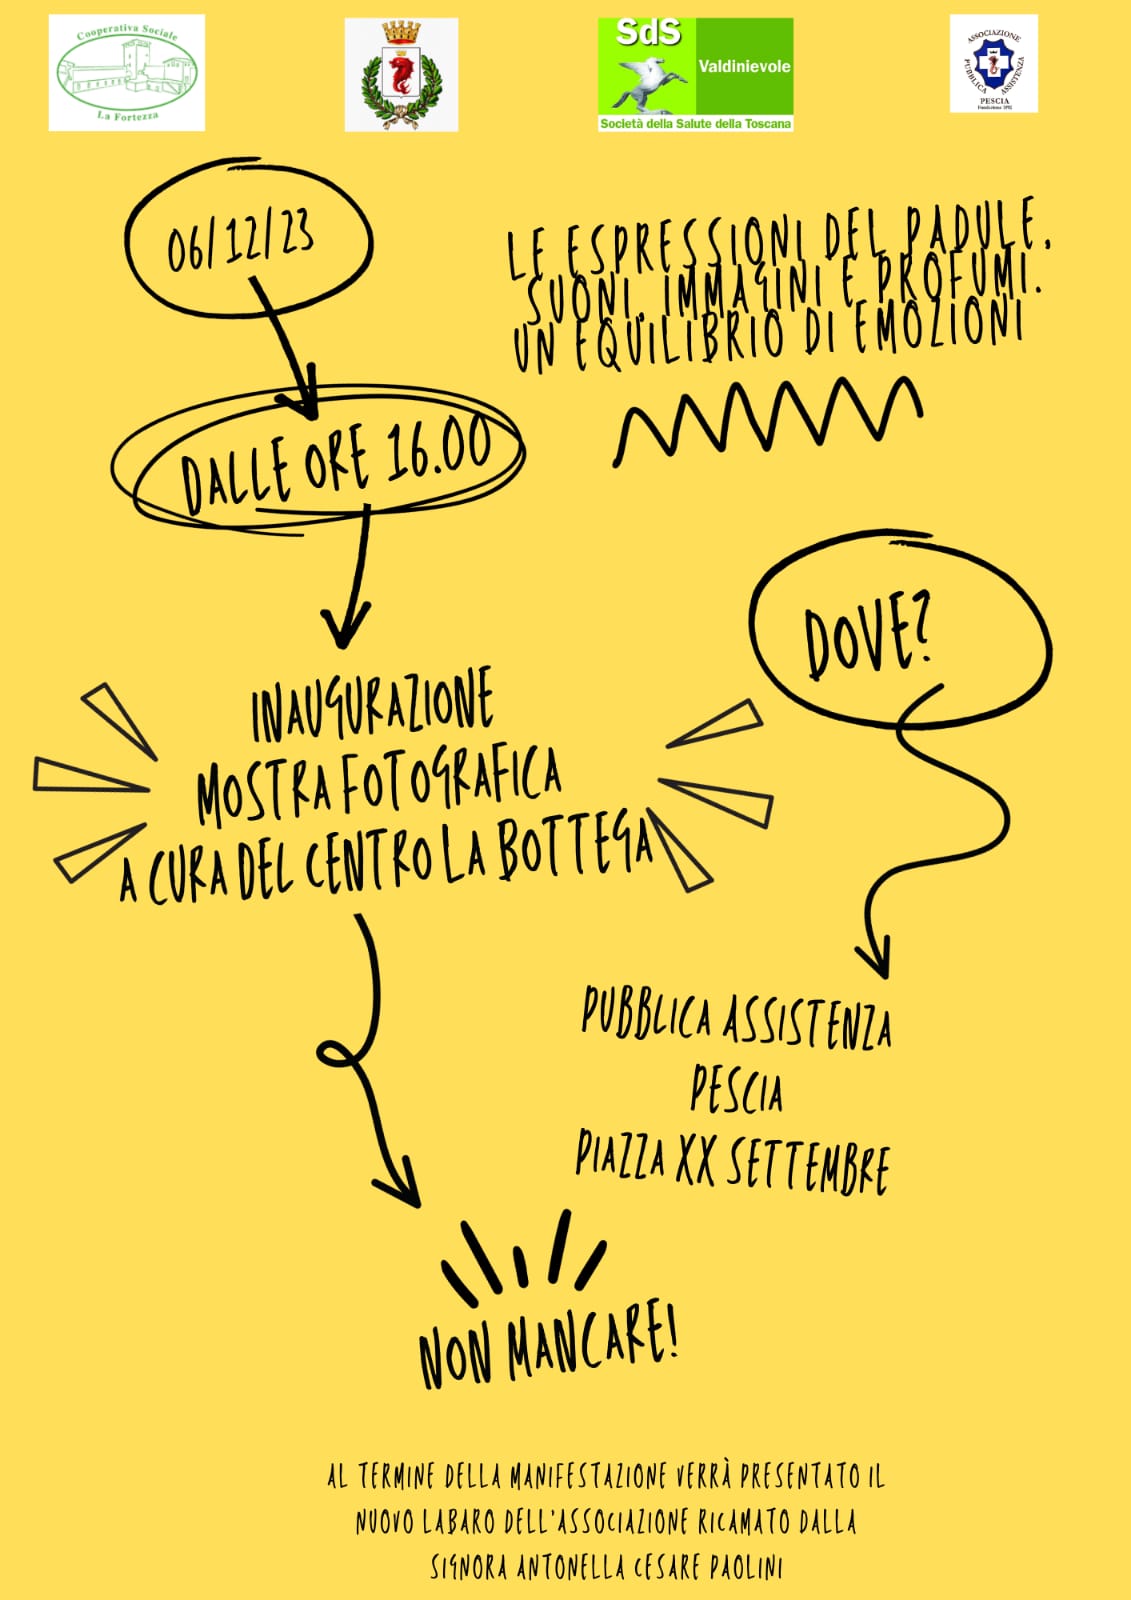 Cooperativa Sociale
La Fortezza
SdS
Valdinievole
Società della Salute della Toscana
ASSOCIAZIONE
PUBBLICA ASSISTENZA
PESCIA
06/12/23
LE ESPRESSIONI DEL PADULE.
SUONI, IMMAGINI E PROFUMI.
UN EQUILIBRIO DI EMOZIONI
DALLE ORE 16.00
DOVE?
INAUGURAZIONE
MOSTRA FOTOGRAFICA
A CURA DEL CENTRO LA BOTTEGA
PUBBLICA ASSISTENZA
PESCIA
PIAZZA XX SETTEMBRE
NON MANCARE!
AL TERMINE DELLA MANIFESTAZIONE VERRÀ PRESENTATO IL
NUOVO LABARO DELL'ASSOCIAZIONE RICAMATO DALLA
SIGNORA ANTONELLA CESARE PAOLINI